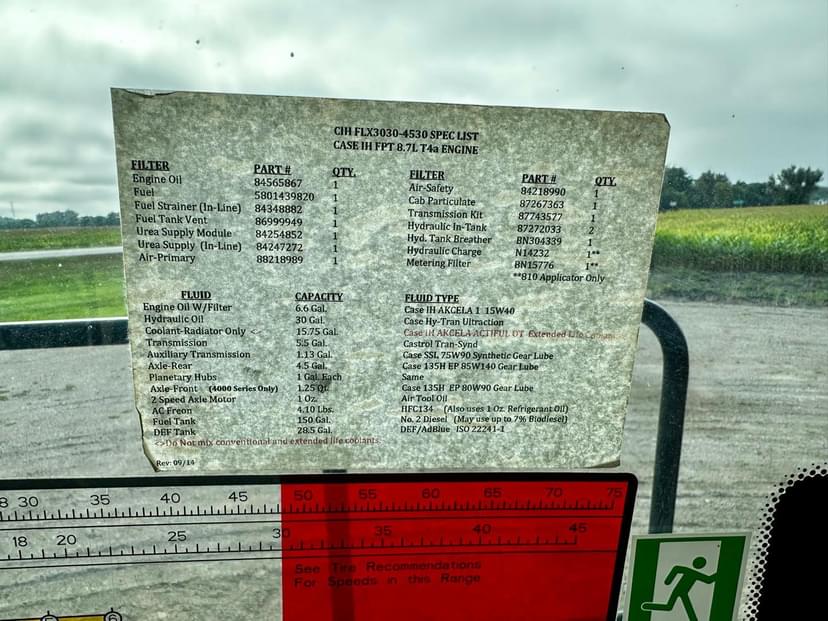 CIH FLX3030-4530 SPEC LIST
CASE IH FPT 8.7L T4a ENGINE
FILTER PART # QTY.
Engine Oil 84565867 1
Fuel 5801439820 1
Fuel Strainer (In-Line) 84348882 1
Fuel Tank Vent 86999949 1
Urea Supply Module 84254852 1
Urea Supply (In-Line) 84247272 1
Air-Primary 88218989 1
FILTER PART # QTY.
Air-Safety 84218990 1
Cab Particulate 87267363 1
Transmission Kit 87743577 1
Hydraulic In-Tank 87272033 2
Hyd. Tank Breather BN304339 1
Hydraulic Charge N14232 1**
Metering Filter BN15776 1**
**810 Applicator Only
FLUID CAPACITY FLUID TYPE
Engine Oil W/Filter 6.6 Gal. Case IH AKCELA 1 15W40
Hydraulic Oil 30 Gal. Case Hy-Tran Ultraction
Coolant-Radiator Only <> 15.75 Gal. Case IH AKCELA ACTIFUL OT Extended Life Coolant
Transmission 5.5 Gal. Castrol Tran-Synd
Auxiliary Transmission 1.13 Gal. Case SSL 75W90 Synthetic Gear Lube
Axle-Rear 4.5 Gal. Case 135H EP 85W140 Gear Lube
Planetary Hubs 1 Gal. Each Same
Axle-Front (4000 Series Only) 1.25 Qt. Case 135H EP 80W90 Gear Lube
2 Speed Axle Motor 1 Oz. Air Tool Oil
AC Freon 4.10 Lbs. HFC134 (Also uses 1 Oz. Refrigerant Oil)
Fuel Tank 150 Gal. No. 2 Diesel (May use up to 7% Biodiesel)
DEF Tank 28.5 Gal. DEF/AdBlue ISO 22241-1
<>Do Not mix conventional and extended life coolants
Rev: 09/14
8 30 35 40 45 50 55 60 65 70 75
18 20 25 30 35 40 45
See Tire Recommendations
For Speeds in this Range
5 6